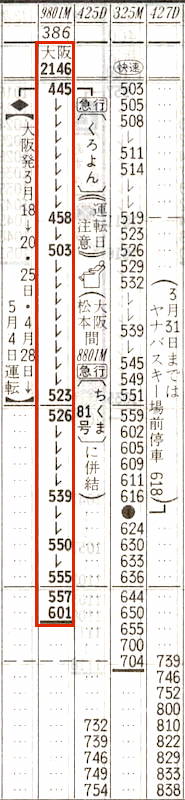 9801M 425D 325M 427D
386
大阪
2146 快速
445 急行 503
レ 505
レ 508
レ レ
レ 511
レ 514
レ レ
458 519
レ 523
503 526
レ 529
レ 532
レ レ
レ レ
レ 539
レ レ
レ 545
レ 549
523 551
526 559
レ 602
レ 605
レ 609
レ 611
539 616
レ
レ 624
550 630
レ 633
555 636
557 644
601 650
655
700
704 739
746
752
800
732 810
739 822
746 829
749 833
754 838
◆(大阪発3月18→20・25日・4月28日→5月4日運転)
急行(くろよん)
(運転日注意)
(大阪 松本間 8801M 急行 ちくま81号に併結)
(3月31日までは ヤナバスキー場前停車 618)